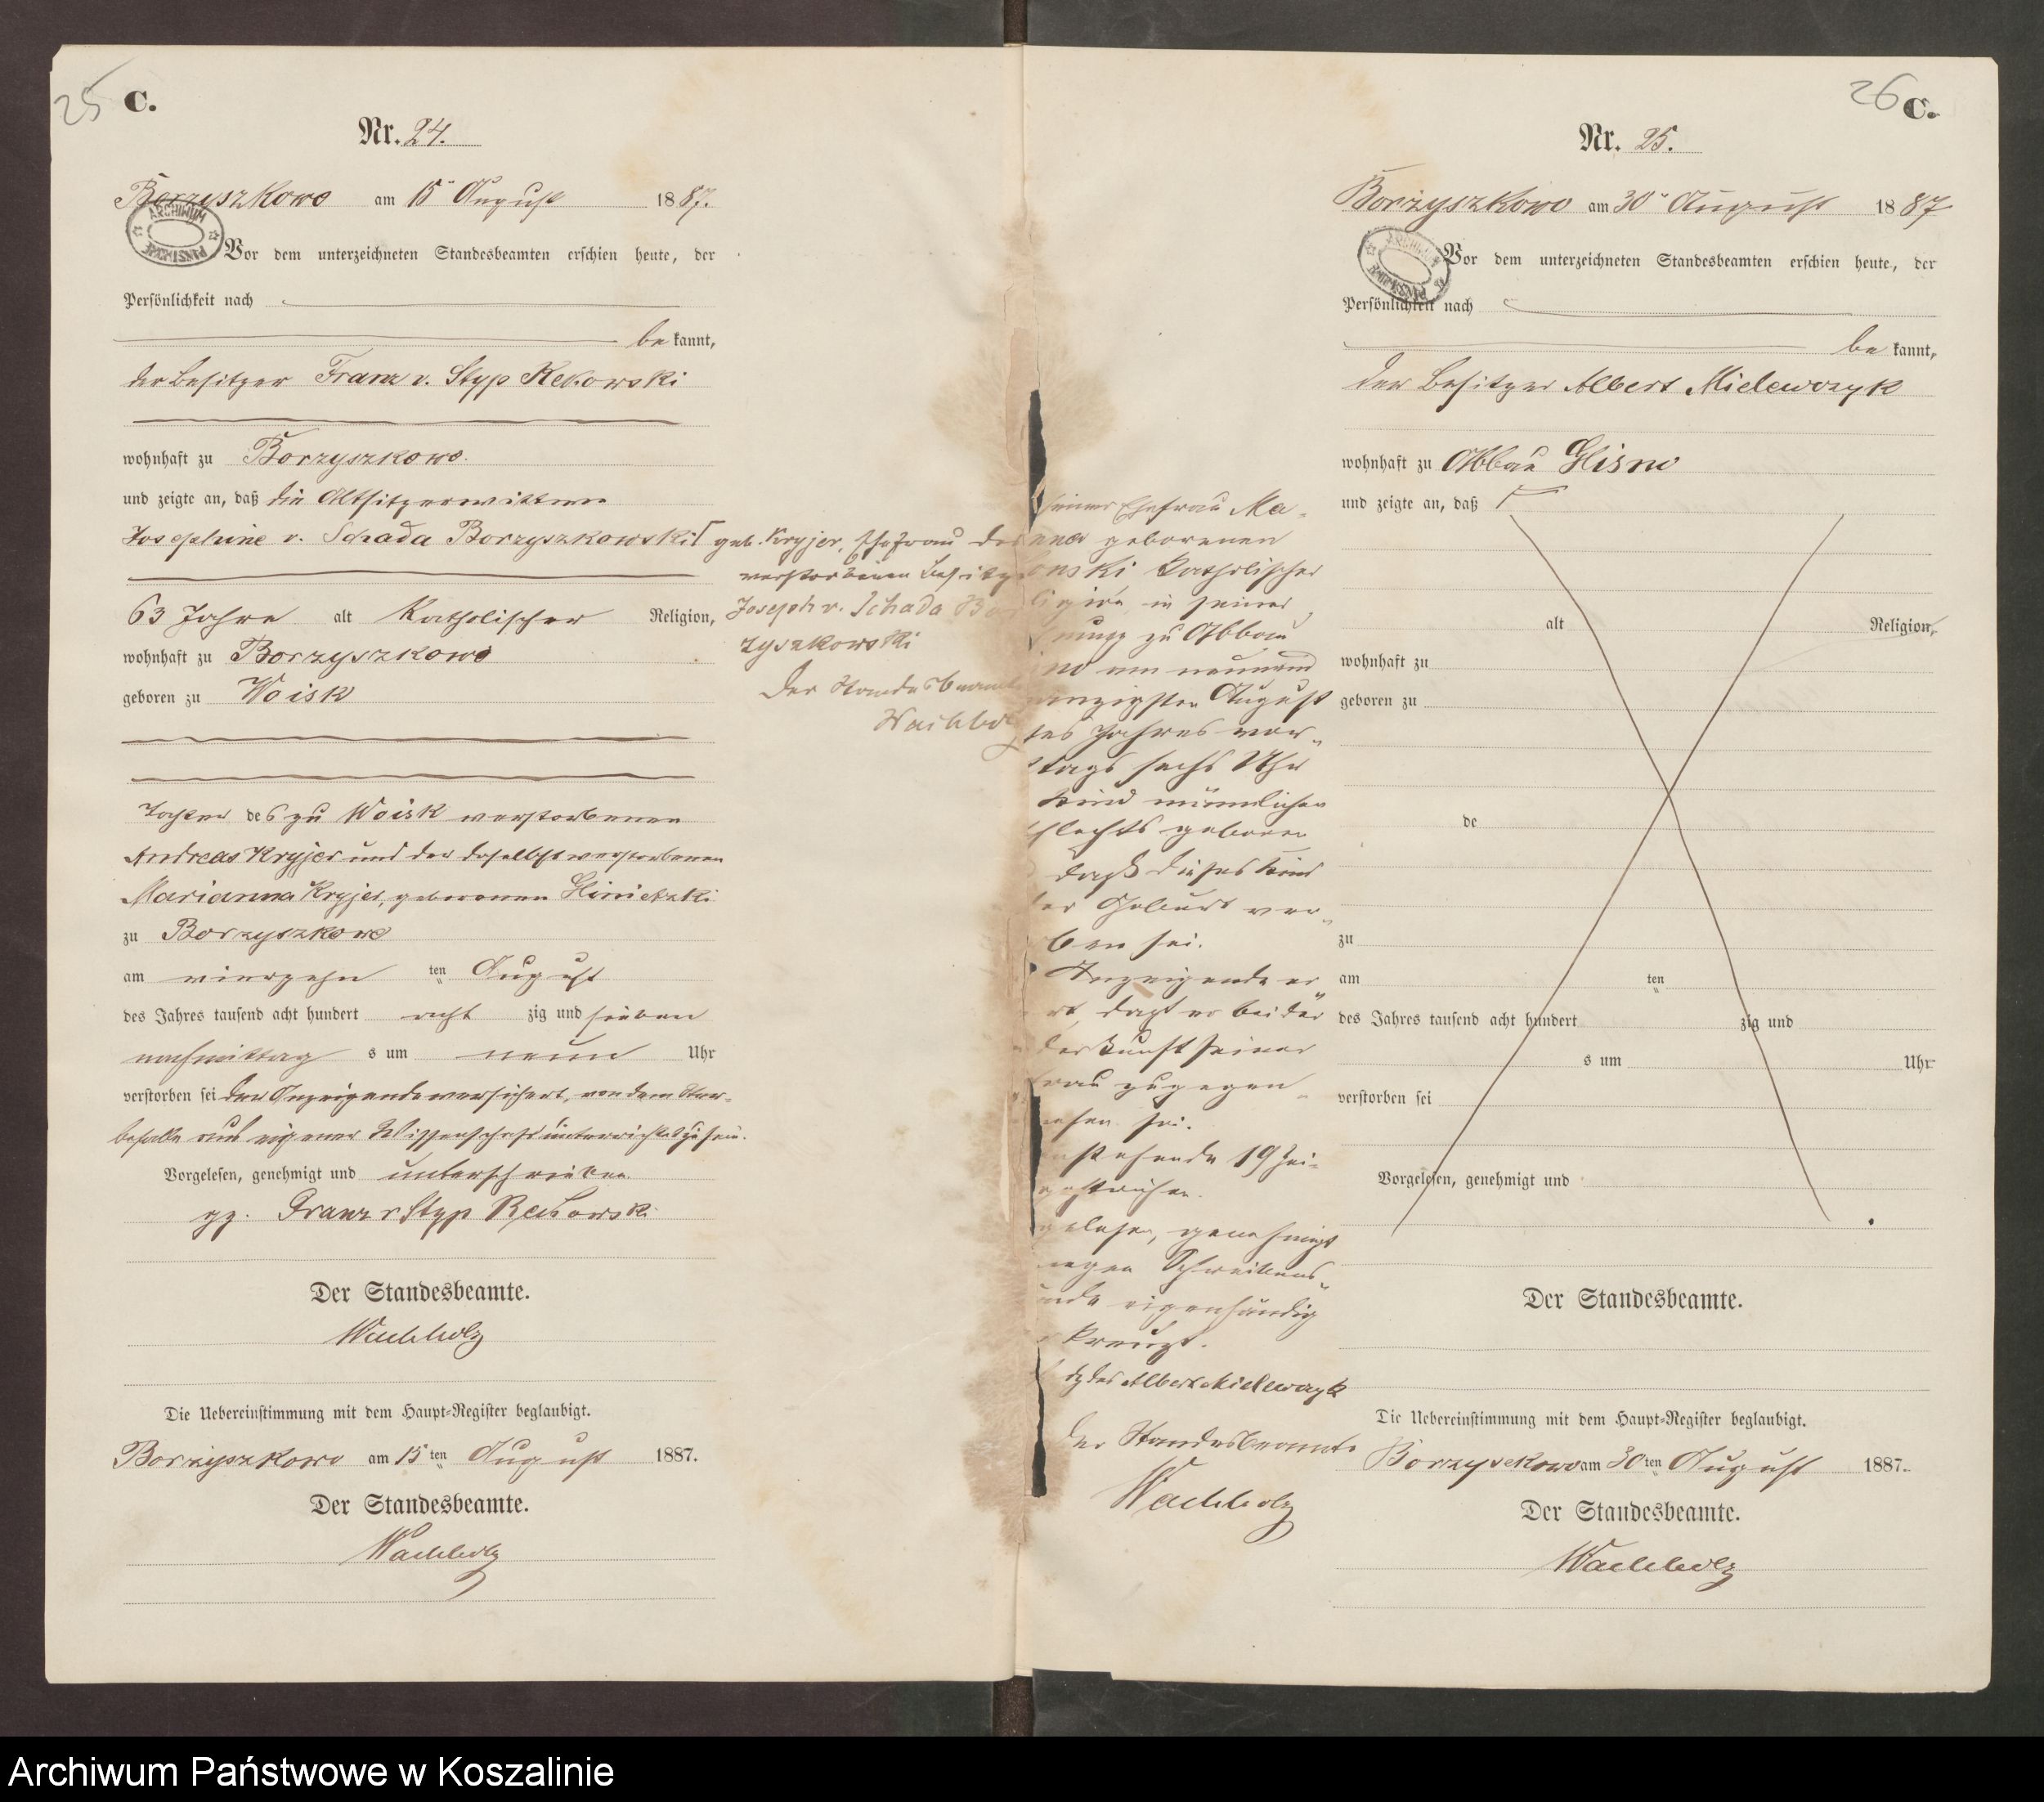 25 C.
Nr. 24.
Borzyszkowo am 15ⁿ August 1887.
ARCHIWUM PAŃSTWOWE
Vor dem unterzeichneten Standesbeamten erschien heute, der
Persönlichkeit nach
bekannt,
der Besitzer Franz v. Styp Rekowski
wohnhaft zu Borzyszkowo.
und zeigte an, daß die Altsitzerwittwe
Josephine v. Schada Borzyszkowski
63 Jahre alt Katholischer Religion,
wohnhaft zu Borzyszkowo
geboren zu Woisk
Tochter des zu Woisk verstorbenen
Andreas Kryjer und der daselbst verstorbenen
Marianna Kryjer, geborenen
zu Borzyszkowo
am vierzehn ten August
des Jahres tausend acht hundert acht zig und sieben
nachmittag s um neun Uhr
verstorben sei der Anzeigende versichert, von dem Ster-
befalle aus eigener Wissenschaft unterrichtet zu sein.
Vorgelesen, genehmigt und unterschrieben
gz. Franz v Styp Rekowski
Der Standesbeamte.
Wachholz
Die Uebereinstimmung mit dem Haupt-Register beglaubigt.
Borzyszkowo am 15 ten August 1887.
Der Standesbeamte.
Wachholz
geb. Kryjer, Ehefrau des
verstorbenen Besitz
Joseph v. Schada Bor
zyszkowski
Der Standesbeamte
Wachholz
seiner Ehefrau Ma-
geborenen
nski Katholischer
ligion, in seiner
nung zu Abbau
no am neunund
anzigsten August
ses Jahres vor-
tags sechs Uhr
Kind männlichen
schlechts geboren
daß dieses Kind
der Geburt ver-
ben sei.
Anzeigende er
rt daß er bei der
derkunft seiner
frau zugegen
esen sei.
stehende 19 Zei-
gestrichen.
gelesen, genehmigt
wegen Schreibens-
unde eigenhändig
kreuzt.
des Albert Mielewczyk
Der Standesbeamte
Wachholz
26 C.
Nr. 25.
Borzyszkowo am 30ⁿ August 1887
ARCHIWUM PAŃSTWOWE
Vor dem unterzeichneten Standesbeamten erschien heute, der
Persönlichkeit nach
bekannt,
der Besitzer Albert Mielewczyk
wohnhaft zu Abbau Glisno
und zeigte an, daß
alt Religion,
wohnhaft zu
geboren zu
de
zu
am ten
des Jahres tausend acht hundert zig und
s um Uhr
verstorben sei
Vorgelesen, genehmigt und
Der Standesbeamte.
Die Uebereinstimmung mit dem Haupt-Register beglaubigt.
Borzyszkowo am 30 ten August 1887.
Der Standesbeamte.
Wachholz
Archiwum Państwowe w Koszalinie